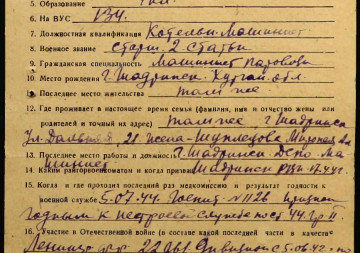 5. Образование
6. На ВУС 134.
7. Должностная квалификация Котельн. Машинист
8. Военное звание старш. 2 статьи
9. Гражданская специальность Машинист паровоза
10. Место рождения г. Шадринск, Курган. обл.
11. Последнее место жительства там же
12. Где проживает в настоящее время семья (фамилия, имя и отчество жены или
родителей и точный адрес) там же г. Шадринск
ул. Дальная, 21 жена
13. Последнее место работы и должность г. Шадринск Депо Ма
шинист
14. Каким райгорвоенкоматом и когда призван Шадринск РВК
15. Когда и где проходил последний раз медкомиссию и результат годности к
военной службе 5.07.44. Госпит. №1126 признан
годным к нестроевой службе по ст 44. гр. II
16. Участие в Отечественной войне (в составе какой последней части и в качестве